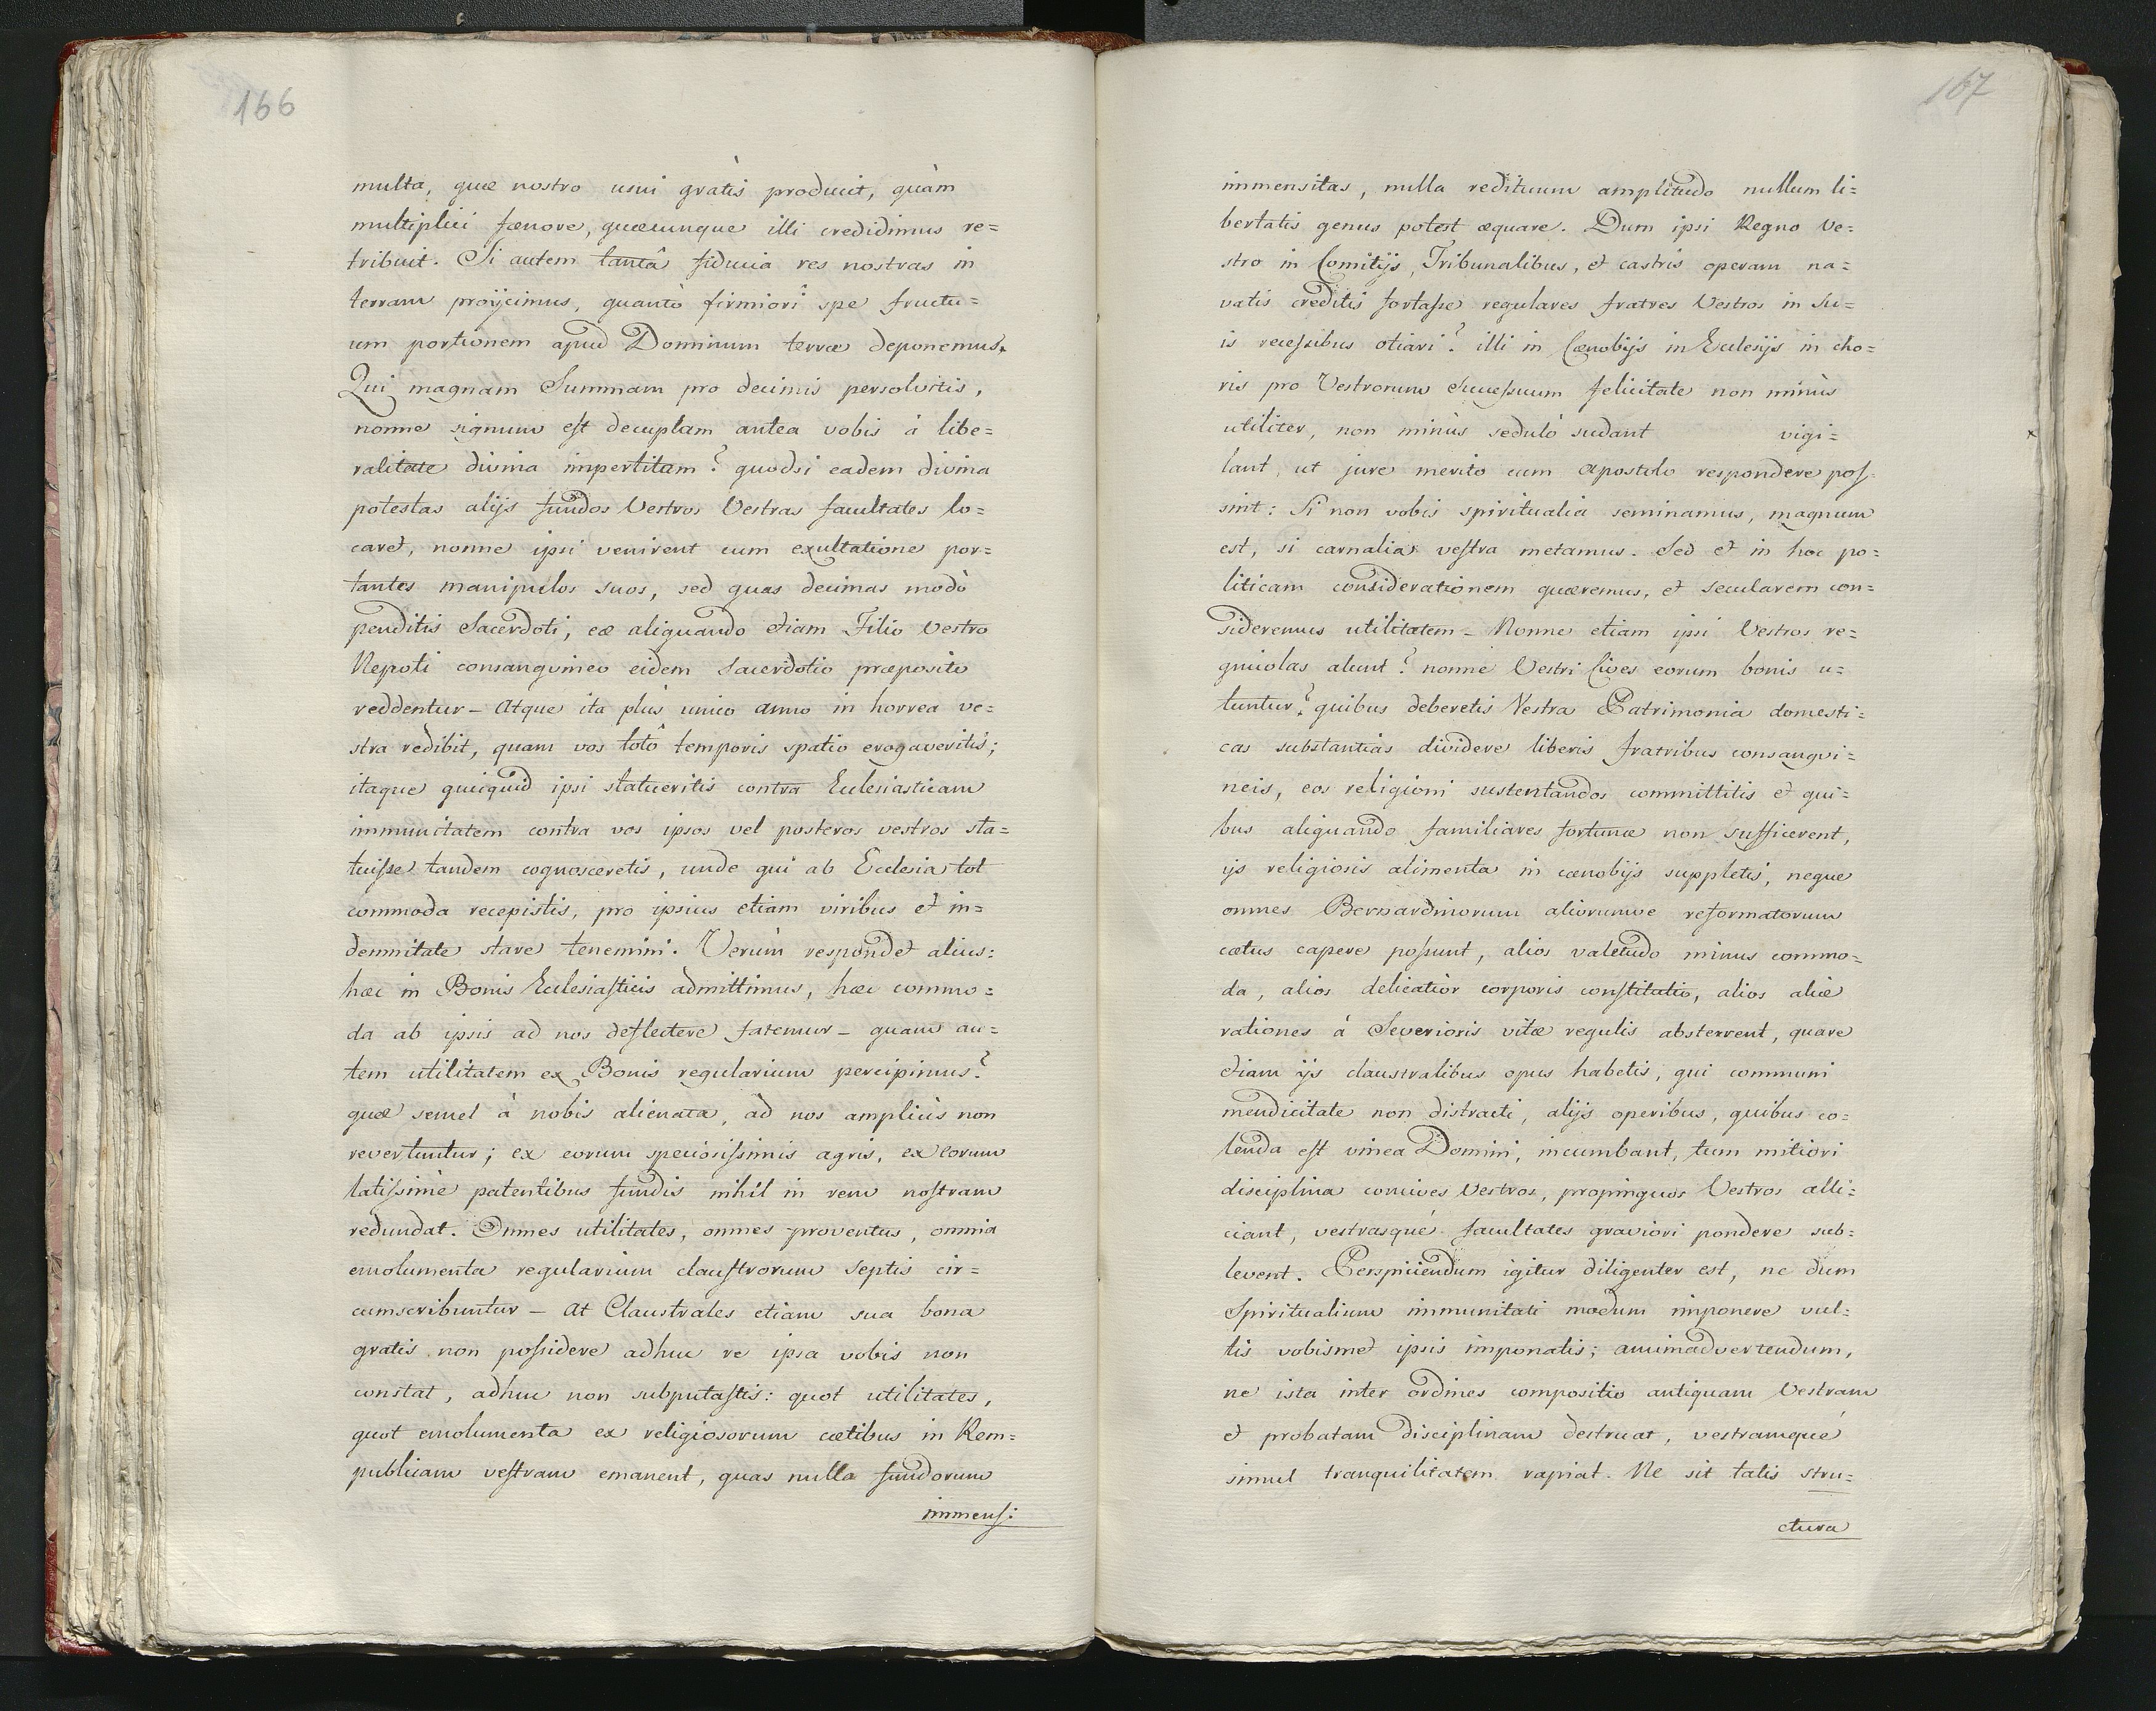 166
multa, quæ nostro usui gratis producit, quàm
multiplici fænore, quæcunque illi credidimus re=
tribuit. Si autem tantâ fiducia res nostras in
terram proijcimus, quantò firmiori spe fructu=
um portionem apud Dominum terræ deponemus.
Qui magnam Summam pro decimis persolvitis,
nonne signum est decuplam antea vobis à libe=
ralitate divina impertitam? quodsi eadem divina
potestas alijs fundos Vestros Vestras facultates lo=
caret, nonne ipsi venirent cum exultatione por=
tantes manipulos suos, sed quas decimas modò
penditis Sacerdoti, eæ aliquando etiam Filio Vestro
Nepoti consangvineo eidem Sacerdotio præposito
reddentur_ Atque ita plus unico anno in horrea ve=
stra redibit, quam vos totô temporis spatio erogaveritis;
itaque quicquid ipsi statueritis contra Ecclesiasticam
immunitatem contra vos ipsos vel posteros vestros sta=
tuisse tandem cognosceretis, unde qui ab Ecclesia tot
commoda recepistis, pro ipsius etiam viribus et in=
demnitate stare tenemini. Verùm respondet alius:
hæc in Bonis Ecclesiasticis admittimus, hæc commo=
da ab ipsis ad nos deflectere fatemur_ quam au=
tem utilitatem ex Bonis regularium percipimus?
quæ semel à nobis alienata, ad nos ampliùs non
revertuntur; ex eorum speciosissimis agris, ex eorum
latissimè patentibus fundis nihil in rem nostram
redundat. Omnes utilitates, omnes proventus, omnia
emolumenta regularium claustrorum septis cir=
cumscribuntur_ At Claustrales etiam sua bona
gratis non possidere adhuc re ipsa vobis non
constat, adhuc non subputastis: quot utilitates,
quot emolumenta ex religiosorum cætibus in Rem=
publicam vestram emanent, quas nulla fundorum
immensi:
167
immensitas, nulla redituum amplitudo nullum li=
bertatis genus potest æquare. Dum ipsi Regno Ve=
stro in Comitijs, Tribunalibus, et castris operam na=
vatis creditis fortasse regulares fratres Vestros in Su=
is recessibus otiari? illi in Cænobijs in Ecclesijs in cho=
ris pro Vestrorum Successuum felicitate non minùs
utiliter, non minùs sedulò sudant vigi=
lant, ut jure merito cum Apostolo respondere pos
sint: Si non vobis spiritualia seminamus, magnum
est, si carnalia vestra metamus. Sed et in hoc po=
liticam considerationem quæremus, et secularem con=
sideremus utilitatem_ Nonne etiam ipsi Vestros re=
gnicolas alunt? nonne Vestri Cives eorum bonis u=
tuntur? quibus deberetis Vestra Patrimonia domesti=
cas substantias dividere liberis fratribus consangvi=
neis, eos religioni sustentandos committitis et qui=
bus aliquando familiares fortunæ non sufficerent,
ijs religiosis alimenta in cænobijs suppletis, neque
omnes Bernardinorum aliorumve reformatorum
cætus capere possunt, alios valetudo minus commo=
da, alios delicatior corporis constitutio, alios aliæ
rationes à Severioris vitæ regulis absterrent, quare
etiam ijs claustralibus opus habetis, qui communi
mendicitate non distracti, alijs operibus, quibus co=
lenda est vinea Domini, incumbant, tum mitiori
disciplina concives Vestros, propinquos Vestros alli=
ciant, vestrasque facultates graviori pondere sub=
levent. Perspiciendum igitur diligenter est, ne dum
Spiritualium immunitati modum imponere vul=
tis vobismet ipsis imponatis; animadvertendum,
ne ista inter ordines compositio antiquam Vestram
et probatam disciplinam destruat, vestramque
simul tranquilitatem rapiat. Ne sit talis stru=
ctura